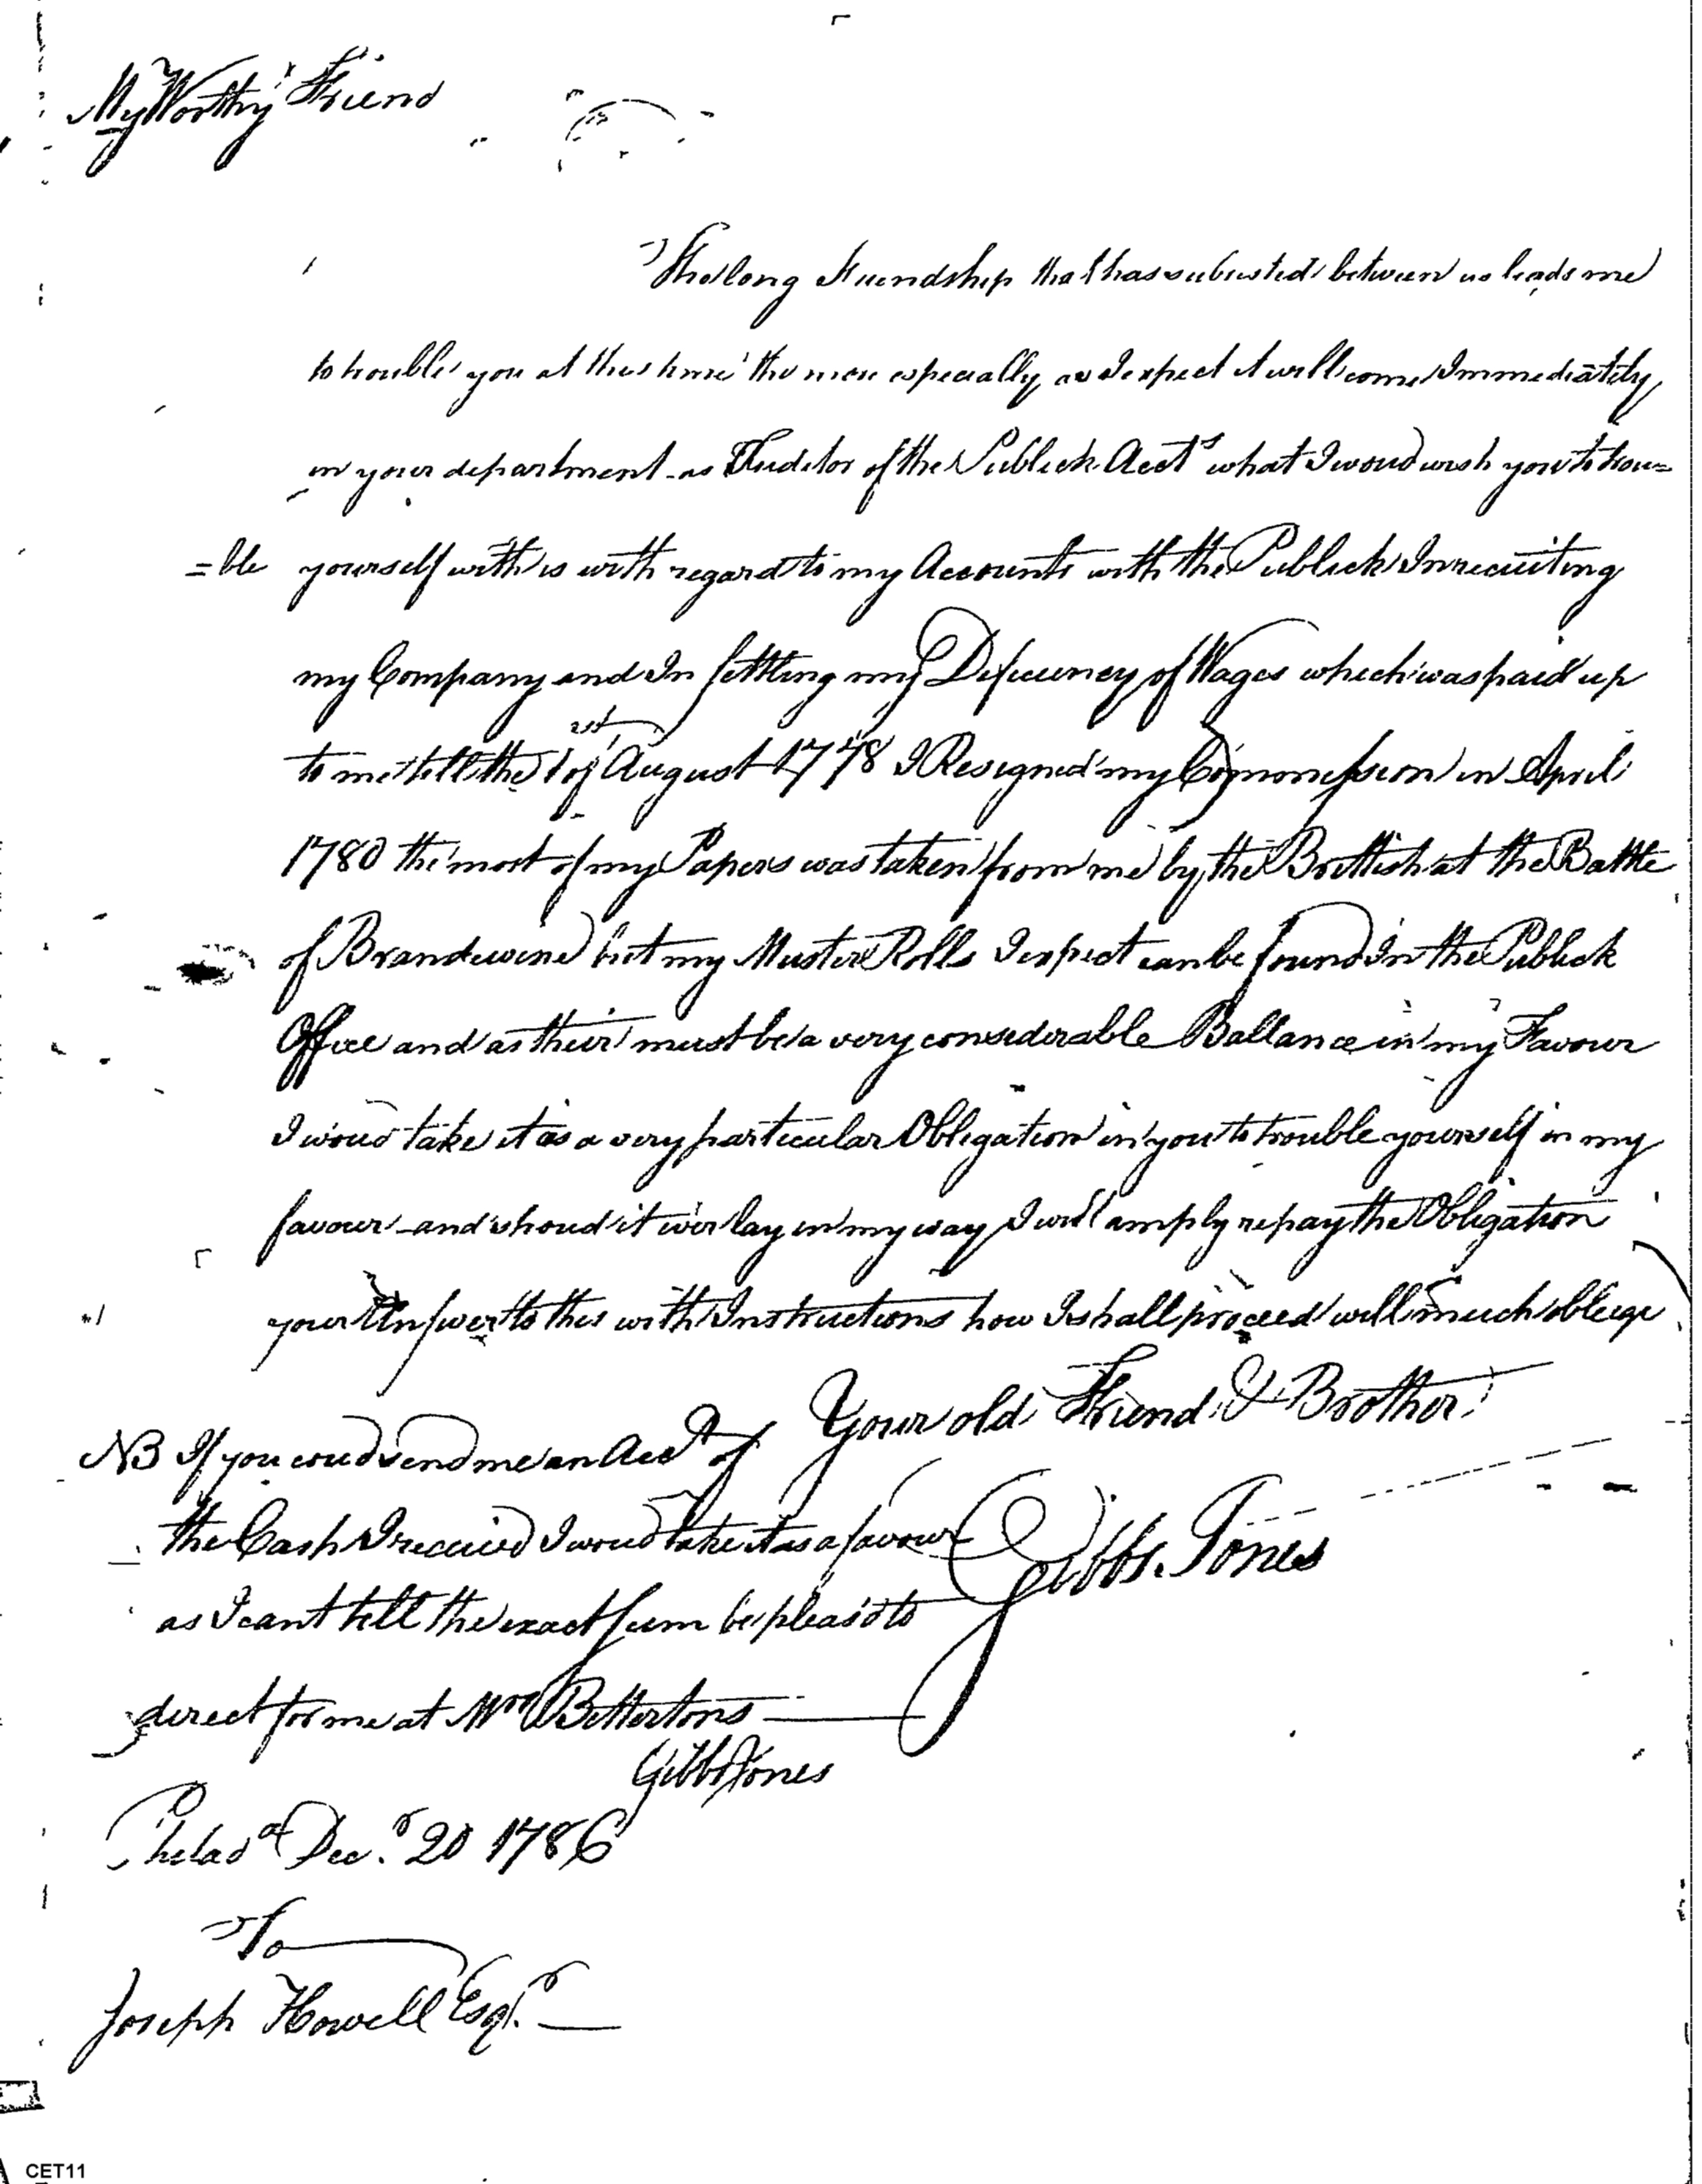 My Worthy Friend
The long Friendship that has subsisted between us leads me
to trouble you at this time the more especially as I expect it will come Immediately
in your department as Auditor of the Publick Accts what I woud wish you to trou=
=ble yourself with is with regard to my Accounts with the Publick In recruiting
my Company and In settling my Deficiency of Wages which was paid up
to me till the 1st of August 1778 I Resigned my Commission in April
1780 the most of my Papers was taken from me by the Brittish at the Battle
of Brandewine but my Muster Rolls I expect can be found In the Publick
Office and as their must be a very considerable Ballance in my Favour
I woud take it as a very particular Obligation in you to trouble yourself in my
favour and shoud it ever lay in my way I will amply repay the Obligation
your Answer to this with Instructions how I shall proceed will much obleige
Your old Friend & Brother
Gibbs Jones
NB If you coud send me an Acct of
the Cash I received I woud take it as a favour
as I cant tell the exact sum be pleas'd to
direct for me at Wm Bettertons
Gibbs Jones
Philada Decr 20 1786
To
Joseph Howell Esqr
CET11